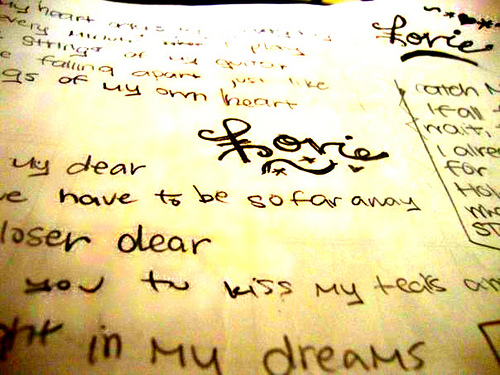 My heart
every minute I play
strings of my guitar
falling apart just like
gs of my own heart
Lovie
Lovie
My dear
have to be so far away
loser dear
you to kiss my tears an
ght in my dreams
catch M
I fall
wait,
I alrea
For
Hol
ST